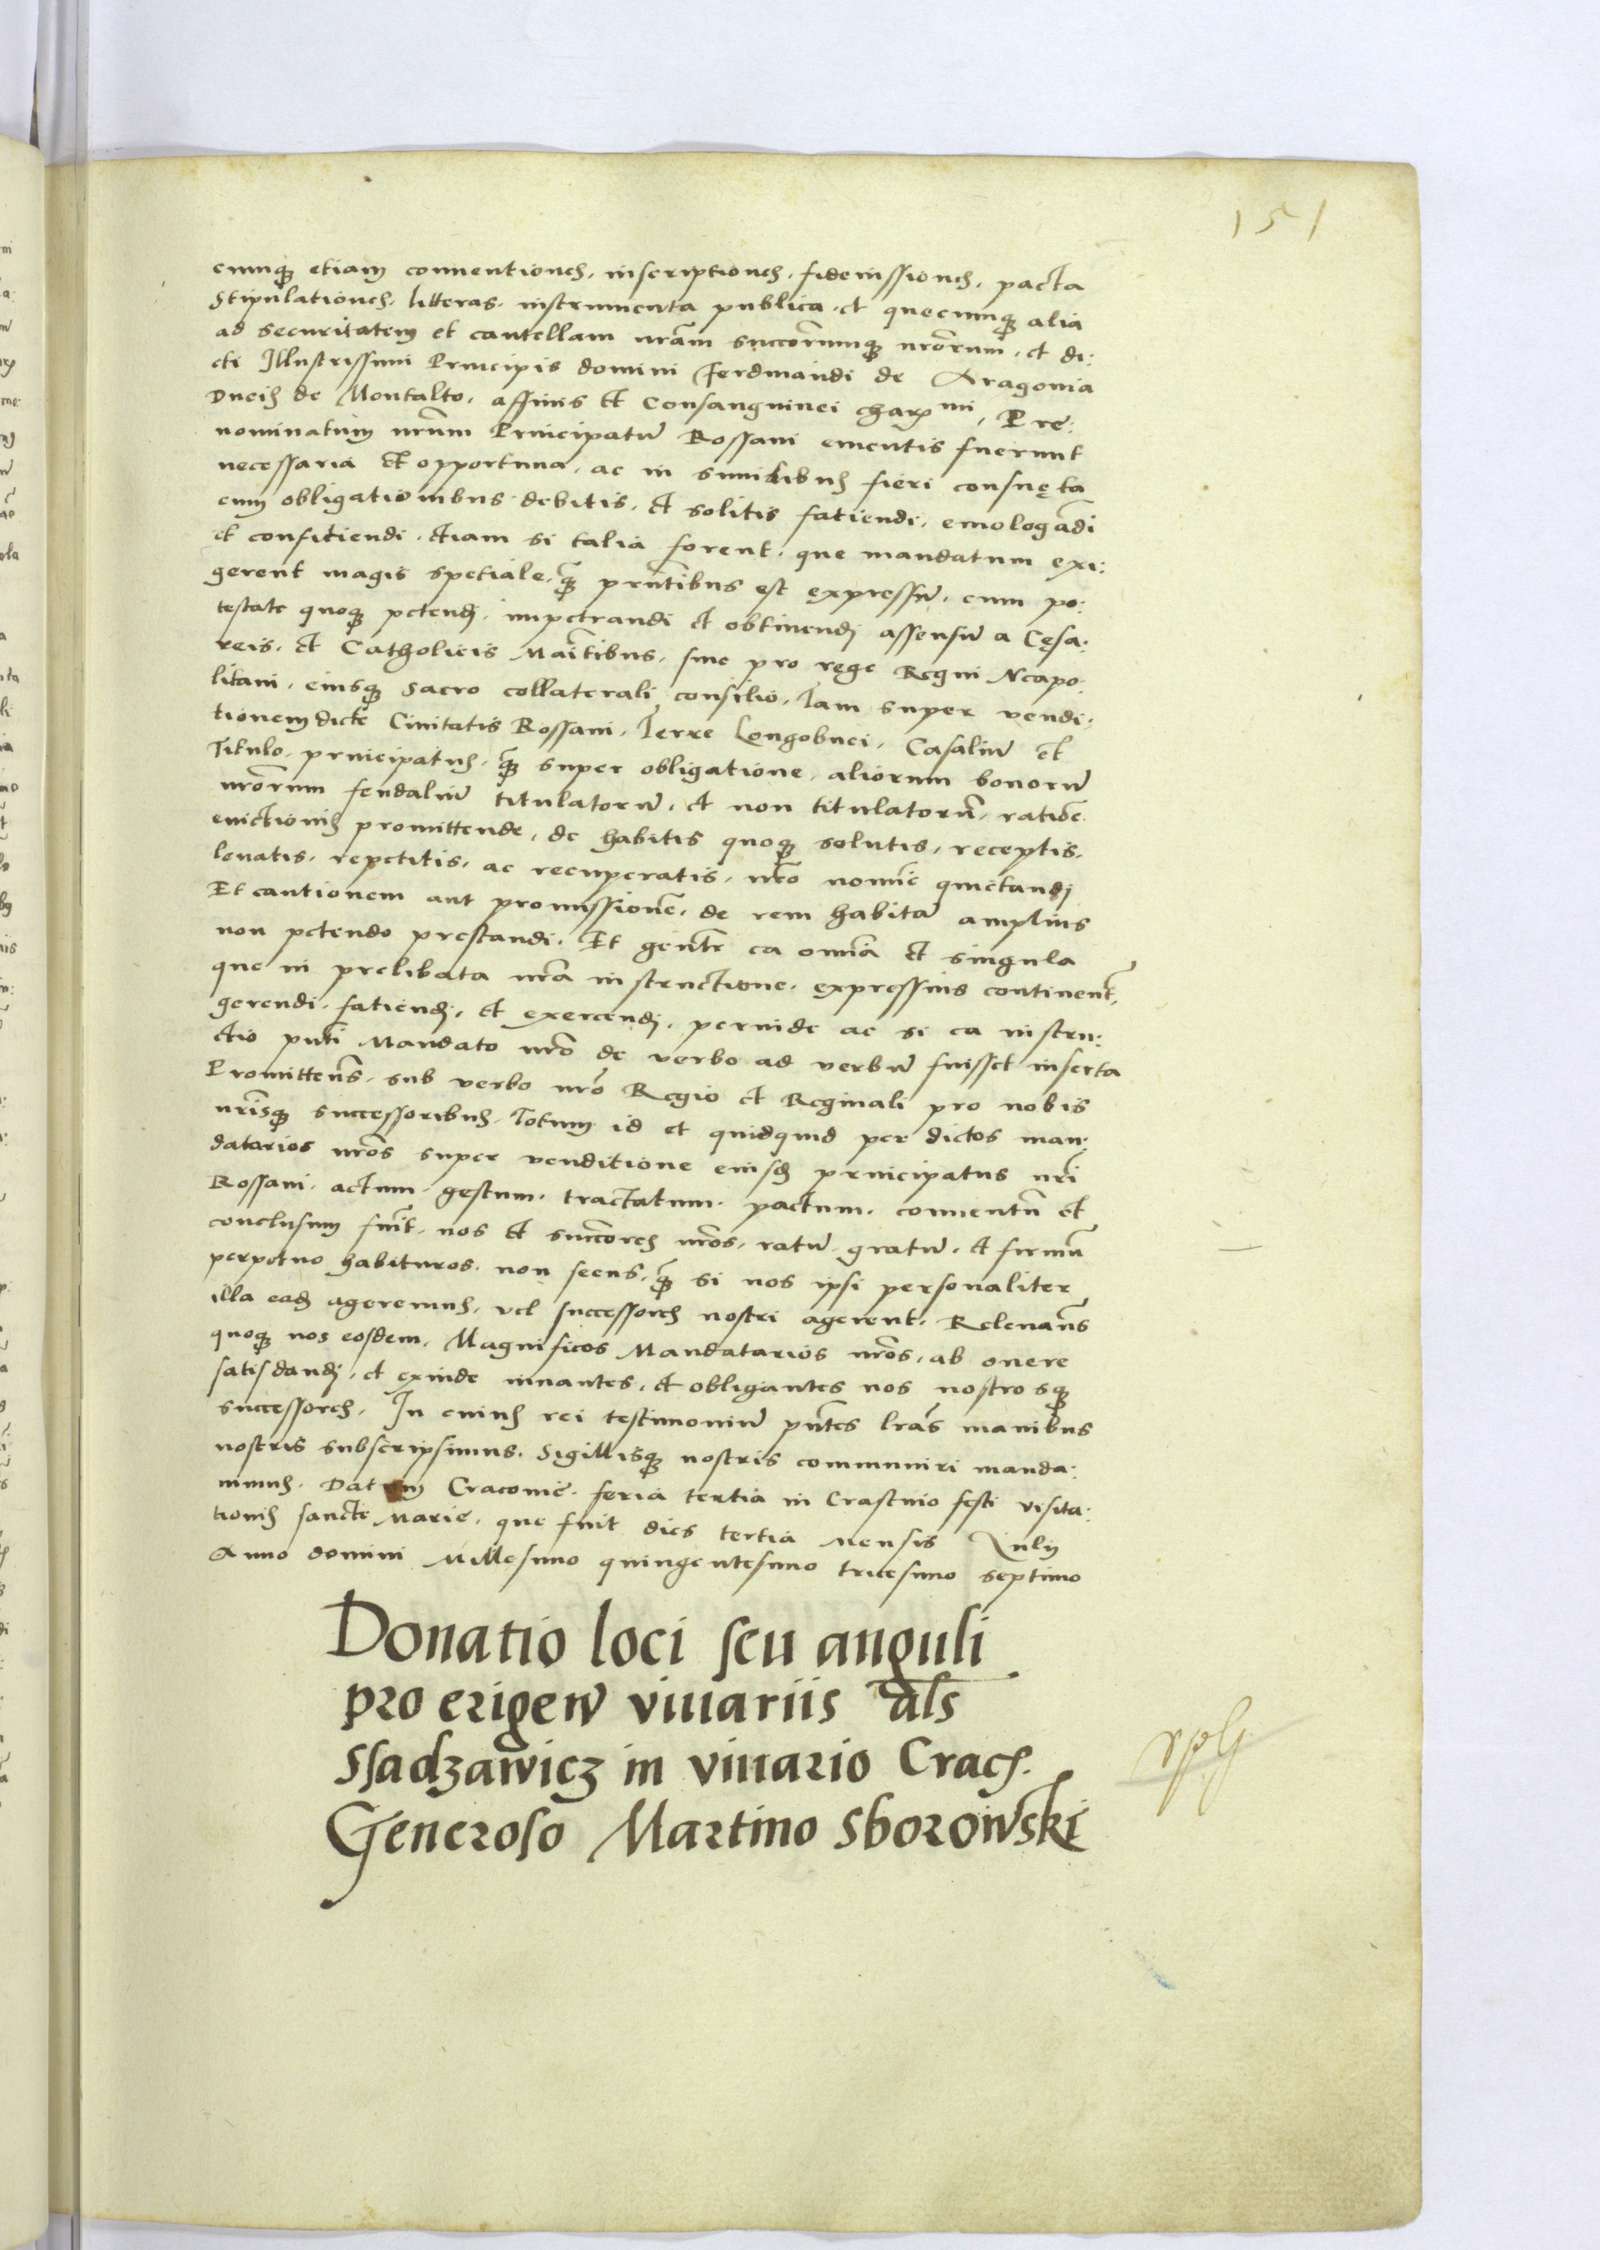 151
cumq etiam conuentiones, inscriptiones, fideiussiones, pacta
Stipulationes, litteras, instrumenta publica, et quecumq alia
ad securitatem et cautellam nr̃am succor̃umq nr̃orum, et di:
cti Illustrissimi Principis domini Ferdinandi de Aragonia
Ducis de Montalto, affinis et Consanguinei char^mi, Pre:
nominatum nr̃um Principatũ Rossani ementis fuerunt
necessaria et opportuna, ac in similibus fieri consuęta
cum obligationibus debitis, et solitis fatiendi, emologãdi
et confitiendi, etiam si talia forent, que mandatum exi:
gerent magis spetiale, q̃ pñtibus est expressũ, cum po:
testate quoq petendi, impetrandi et obtinendi assensũ a Cęsa:
reis, et Catholicis Maĩtibus, siue pro rege Regni Neapo:
litani, eiusq sacro collaterali consilio, Tam super vendi:
tionem dicte Ciuitatis Rossani, Terre Longobuci, Casaliũ et
Titulo principatus, q̃ super obligatione aliorum bonorũ
nr̃orum feudaliũ titulatorũ, et non titulatorũ, ratiõe
euictionis promittende, de habitis quoq solutis, receptis,
leuatis, repetitis, ac recuperatis, nr̃o nomĩe quietandi
Et cautionem aut promissionẽ, de rem habitã amplius
non petendo prestandi. Et geñtr ea omĩa et singula
que in prelibata nr̃a instructione, expressius continent̃,
gerendi, fatiendi, et exercendi, perinde ac si ea instru:
ctio pñti Mandato nr̃o de verbo ad verbũ fuisset inserta
Promitteñs, sub verbo nr̃o Regio et Reginali pro nobis
nr̃isq successoribus, Totum id et quidquid per dictos man:
datarios nr̃os super venditione eiusd principatus nr̃i
Rossani, actum gestum, tractatum, pactum, conuentũ et
conclusum fuĩt, nos et succores nr̃os, ratũ gratũ, et firmũ
perpetuo habituros, non secus, q̃ si nos ipsi personaliter
illa ead ageremus, vel successores nostri agerent, Releuañs
quoq nos eosdem, Magnificos Mandatarios nr̃os, ab onere
satisdandi, et exinde iuuantes, et obligantes nos nostrosq
successores, In cuius rei testimoniũ pñtes lr̃as manibus
nostris subscripsimus, Sigillisq nostris communiri manda:
uimus. Datum Cracouie, feria tertia in Crastino festi visita:
tionis sancte Marie, que fuit dies tertia Mensis Iulij
Anno domini Millesimo quingentesimo tricesimo septimo
Donatio loci seu anguli
pro erigen viuariis als
Ssadzawicz in viuario Crac.
Generoso Martino Sborowski